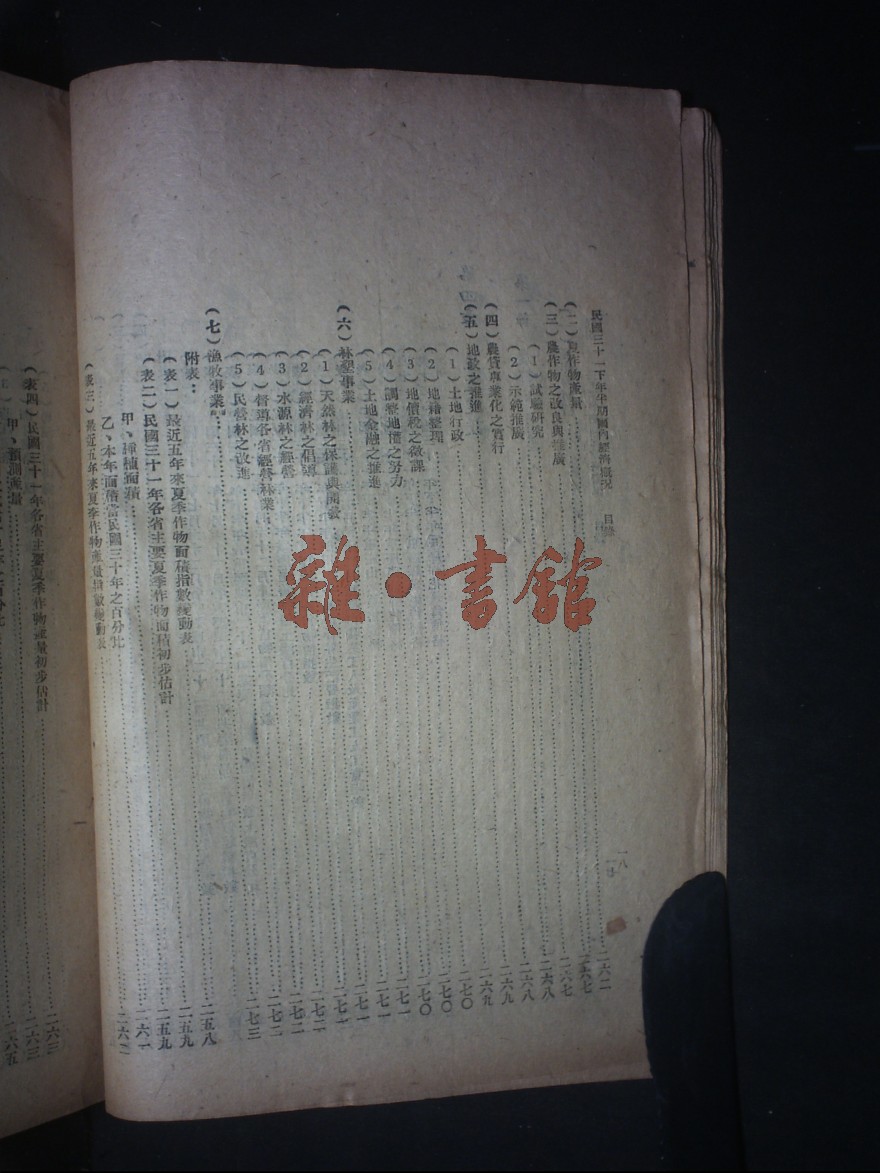 民國三十一下年半期國內經濟概況 目錄
一八
(二)夏作物產量……二六二
(三)農作物之改良與推廣……二六七
(1)試驗研究……二六七
(2)示範推廣……二六八
(四)農貸專業化之實行……二六八
(五)地政之推進……二六九
(1)土地行政……二六九
(2)地籍整理……二七〇
(3)地價稅之徵課……二七〇
(4)調整地權之努力……二七一
(5)土地金融之推進……二七一
(六)林墾事業……二七一
(1)天然林之保護與開發……二七一
(2)經濟林之倡導……二七二
(3)水源林之經營……二七二
(4)督導各省經營林業……二七二
(5)民營林之改進……二七三
(七)漁牧事業……二五八
附表：
(表一)最近五年來夏季作物面積指數變動表……二五九
(表二)民國三十一年各省主要夏季作物面積初步估計……二五九
甲、種植面積……二六一
乙、本年面積當民國三十年之百分比……二六二
(表三)最近五年來夏季作物產量指數變動表
(表四)民國三十一年各省主要夏季作物產量初步估計……二六三
甲、預測產量……二六三
二六五
雜·書館